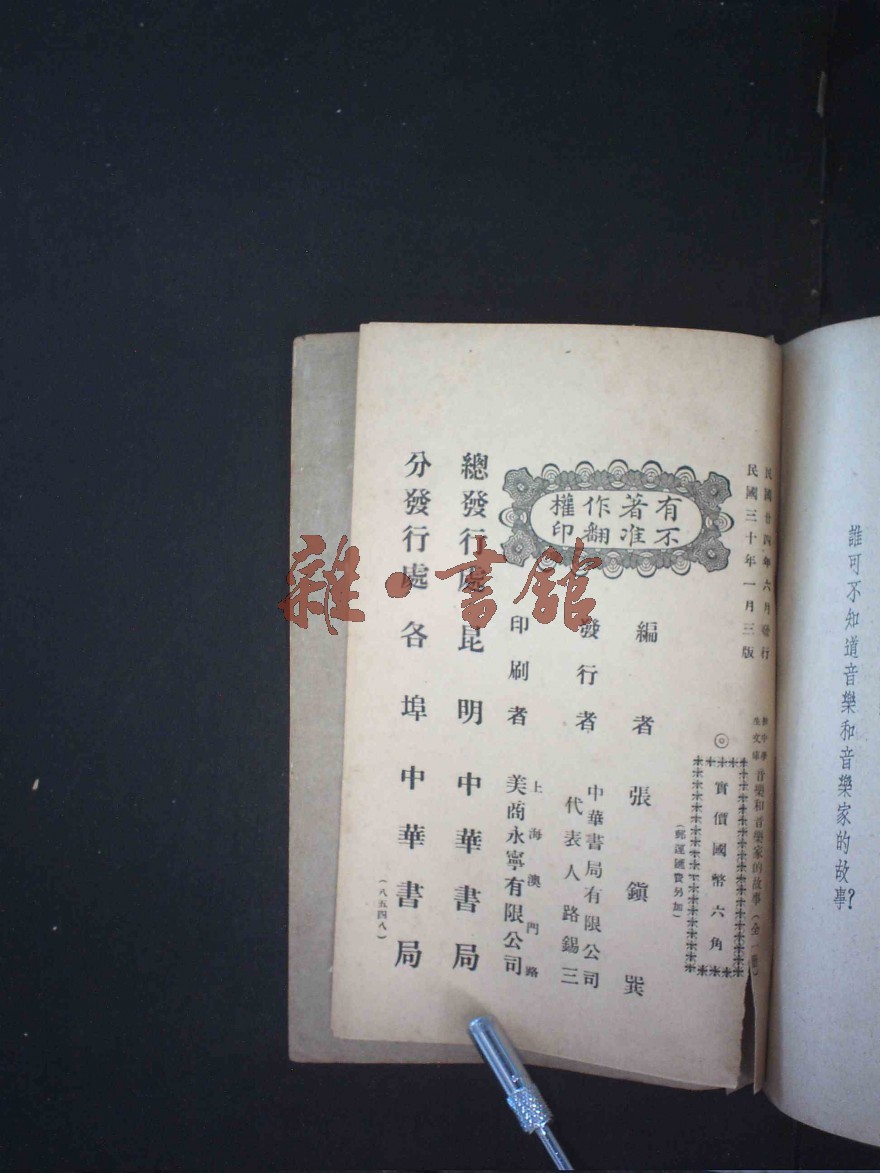 誰可不知道音樂和音樂家的故事?
民國廿四年六月發行
民國三十年一月三版
新中學
生文庫
音樂和音樂家的故事(全一冊)
◎實價國幣六角
(郵運匯費另加)
有不
著准
作翻
權印
編者 張鎮巽
發行者 中華書局有限公司
代表人路錫三
印刷者 上海澳門路
美商永寧有限公司
總發行處 昆明中華書局
分發行處 各埠中華書局
(八五四八)
雜·書館